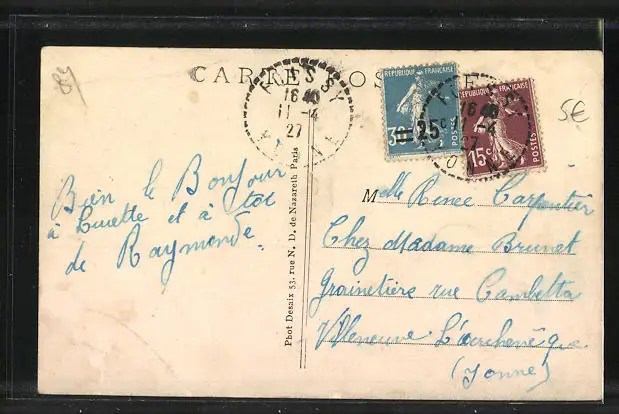 84
CARTE POSTALE
16 40
11 -4
27
YONNE
REPUBLIQUE FRANÇAISE
30 25
POSTES
REPUBLIQUE FRANÇAISE
15c
POSTES
16 40
11 -4
27
5€
Bien le Bonjour
à Lucette et à toi
de Raymonde.
Phot Desaix 53, rue N. D. de Nazareth Paris
Melle Renee Carpentier
Chez Madame Brunet
Grainetière rue Cambetta
Villeneuve L'archevêque
(Yonne)